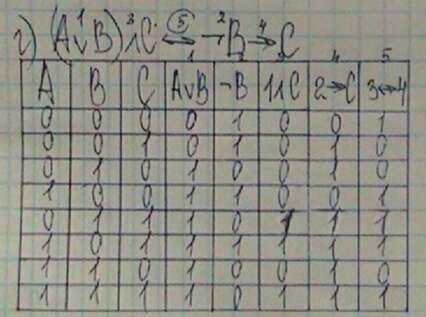 1 3 5 2 4
г) (A∨B)∧C ↔ ¬B → C
1 2 3 4 5
A B C A∨B ¬B 1∧C 2→C 3↔4
0 0 0 0 1 0 0 1
0 0 1 0 1 0 1 0
0 1 0 1 0 0 1 0
1 0 0 1 1 0 0 1
0 1 1 1 0 1 1 1
1 0 1 1 1 1 1 1
1 1 0 1 0 0 1 0
1 1 1 1 0 1 1 1